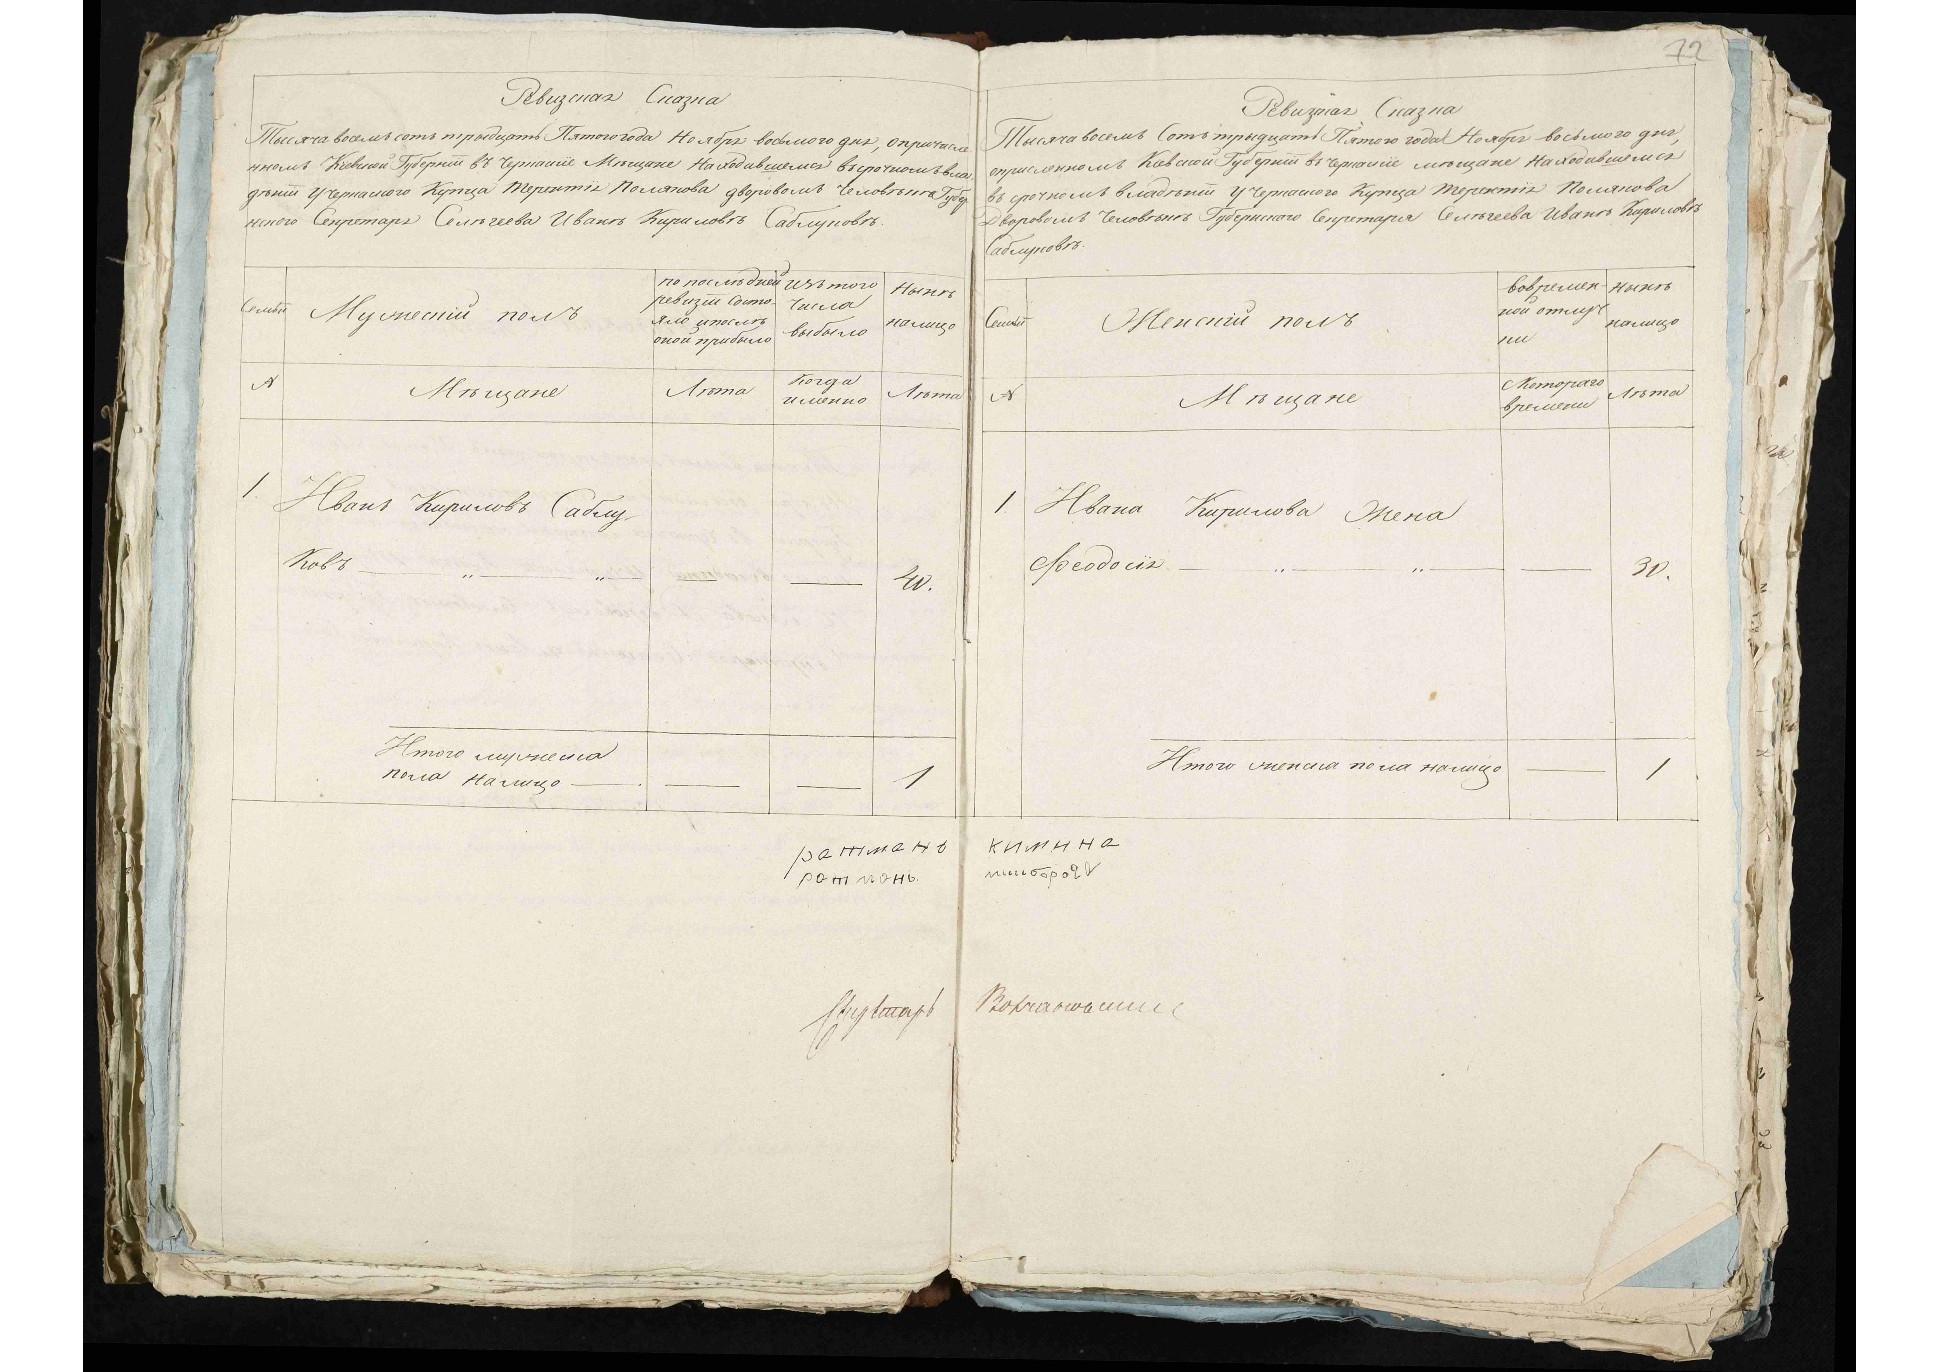 72
Ревизская Сказка
Тысяча восемъ сотъ тридцать Пятого года Ноября восьмого дня, о причисле
нномъ Киевской Губерніи въ Черкасіе Мѣщане Находившемся въ срочномъ вла
дѣніи у Черкаского Купца Терентія Полякова дворовомъ человѣкѣ Губер
нского Секретаря Селѣгеева Иванѣ Кириловѣ Саблуковѣ.
Семьи
Мужескій полъ
по послѣдней
ревизіи состо-
яло и послѣ
оной прибыло
Изъ того
числа
выбыло
Нынѣ
налицо
№
Мѣщане
Лѣта
Когда
именно
Лѣта
1. Иванъ Кириловъ Саблу-
ковъ 40.
Итого мужеска
пола налицо 1
Ревизская Сказка
Тысяча восемъ Сотъ тридцать Пятого года Ноября восьмого дня,
опричисленномъ Киевской Губерніи въ Черкасіе мѣщане Находившемся
въ срочномъ владѣніи у Черкаского Купца Терентія Полякова
Дворовомъ Человѣкѣ Губернского Секретаря Селѣгеева Иванѣ Кириловѣ
Саблуковѣ.
Семьи
Женскій полъ
во времен-
ной отлуч
ки
нынѣ
налицо
№
Мѣщане
Скотораго
времени
Лѣта
1 Ивана Кирилова Жена
Феодосія 30.
Итого женска пола налицо 1
ратманъ кимина
ратманъ
Секретарь